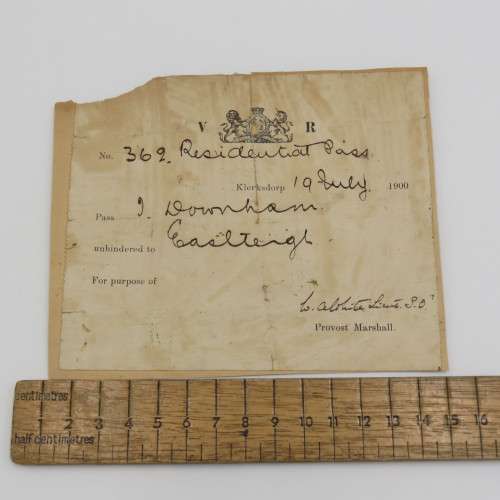 V R
No. 369. Residential Pass
Klerksdorp 19 July 1900
Pass J. Downham
unhindered to Eastleigh
For purpose of
W. A. White Lieut.
Provost Marshall.
centimetres
1 2 3 4 5 6 7 8 9 10 11 12 13 14 15 16
half centimetres